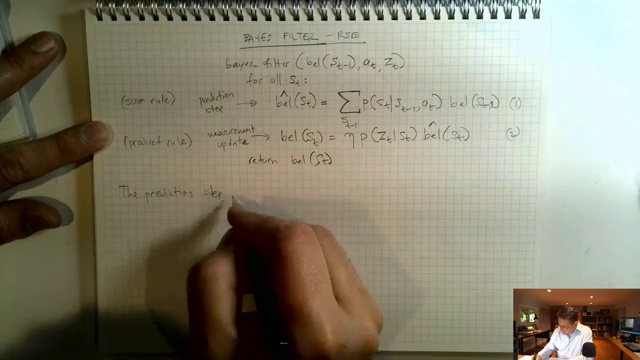 BAYES FILTER - RSE
bayes-filter (bel(St-1), at, Zt)
for all St:
(sum rule) prediction step → bel̂(St) = ∑St-1 P(St|St-1, at) bel(St-1) (1)
(product rule) measurement update → bel(St) = η P(Zt|St) bel̂(St) (2)
return bel(St)
The prediction step